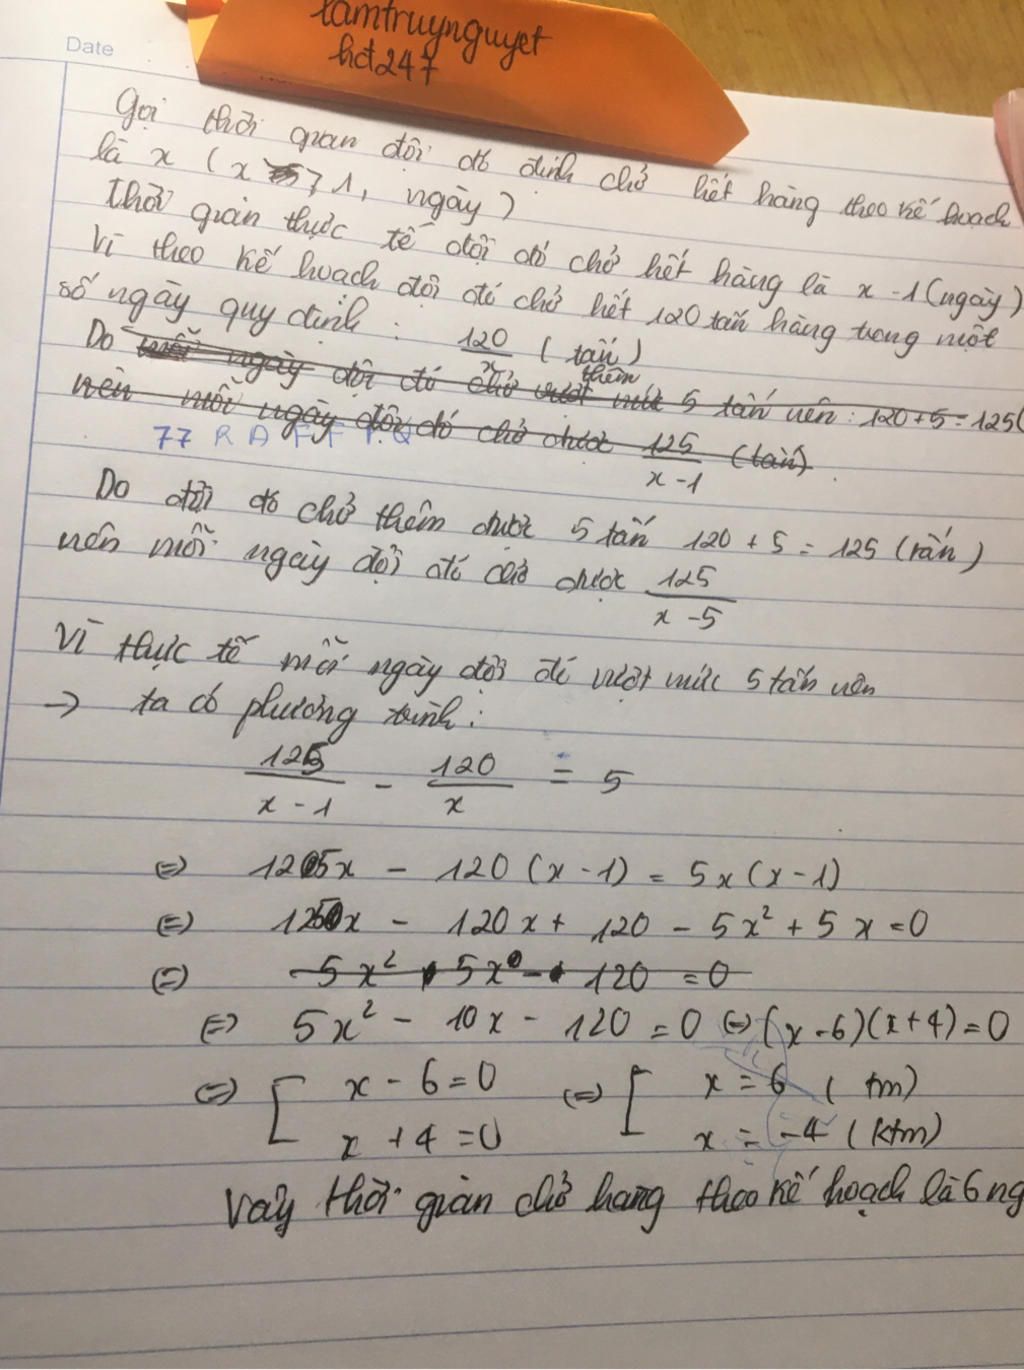 tamtruynguyet
hdt247
Date
Gọi thời gian đội đó định chở hết hàng theo kế hoạch
là x ( x > 1, ngày )
Thời gian thực tế đội đó chở hết hàng là x - 1 (ngày)
Vì theo kế hoạch đội đó chở hết 120 tấn hàng trong một
số ngày quy định : 120/x ( tấn )
Do mỗi ngày đội đó chở vượt mức thêm 5 tấn nên : 120 + 5 = 125 (
nên mỗi ngày đội đó chở được 125/x - 1 (tấn)
77 R A F F P.Q
Do đội đó chở thêm được 5 tấn 120 + 5 = 125 (tấn)
nên mỗi ngày đội đó chở được 125/x - 5
Vì thực tế mỗi ngày đội đó vượt mức 5 tấn nên
→ ta có phương trình :
125/x - 1 - 120/x = 5
⇔ 125x - 120 (x - 1) = 5x (x - 1)
⇔ 125x - 120x + 120 - 5x² + 5x = 0
⇔ 5x² 5x - 120 = 0
⇔ 5x² - 10x - 120 = 0 ⇔ (x - 6)(x + 4) = 0
⇔ [ x - 6 = 0 ⇔ [ x = 6 ( tm)
x + 4 = 0 x = -4 ( ktm)
Vậy thời gian chở hàng theo kế hoạch là 6 ng